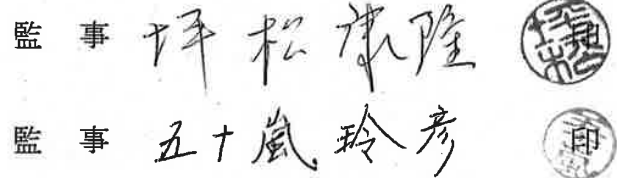 監事 坪松康隆 印
監事 五十嵐玲彦 印